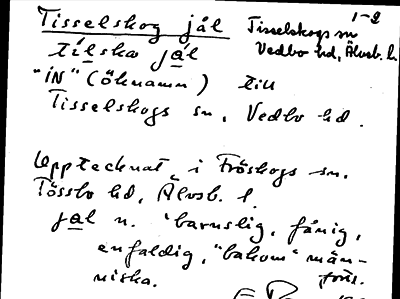 1-2
Tisselskog jål
Tisselskogs sn
Vedbo hd, Älvsb. l.
tilska jål
"IN" (öknamn) till
Tisselskogs sn, Vedbo hd.
Upptecknat i Fröskogs sn.
Tössbo hd, Älvsb. l.
jål n. 'barnslig, fånig,
enfaldig, "bakom" män-
niska.